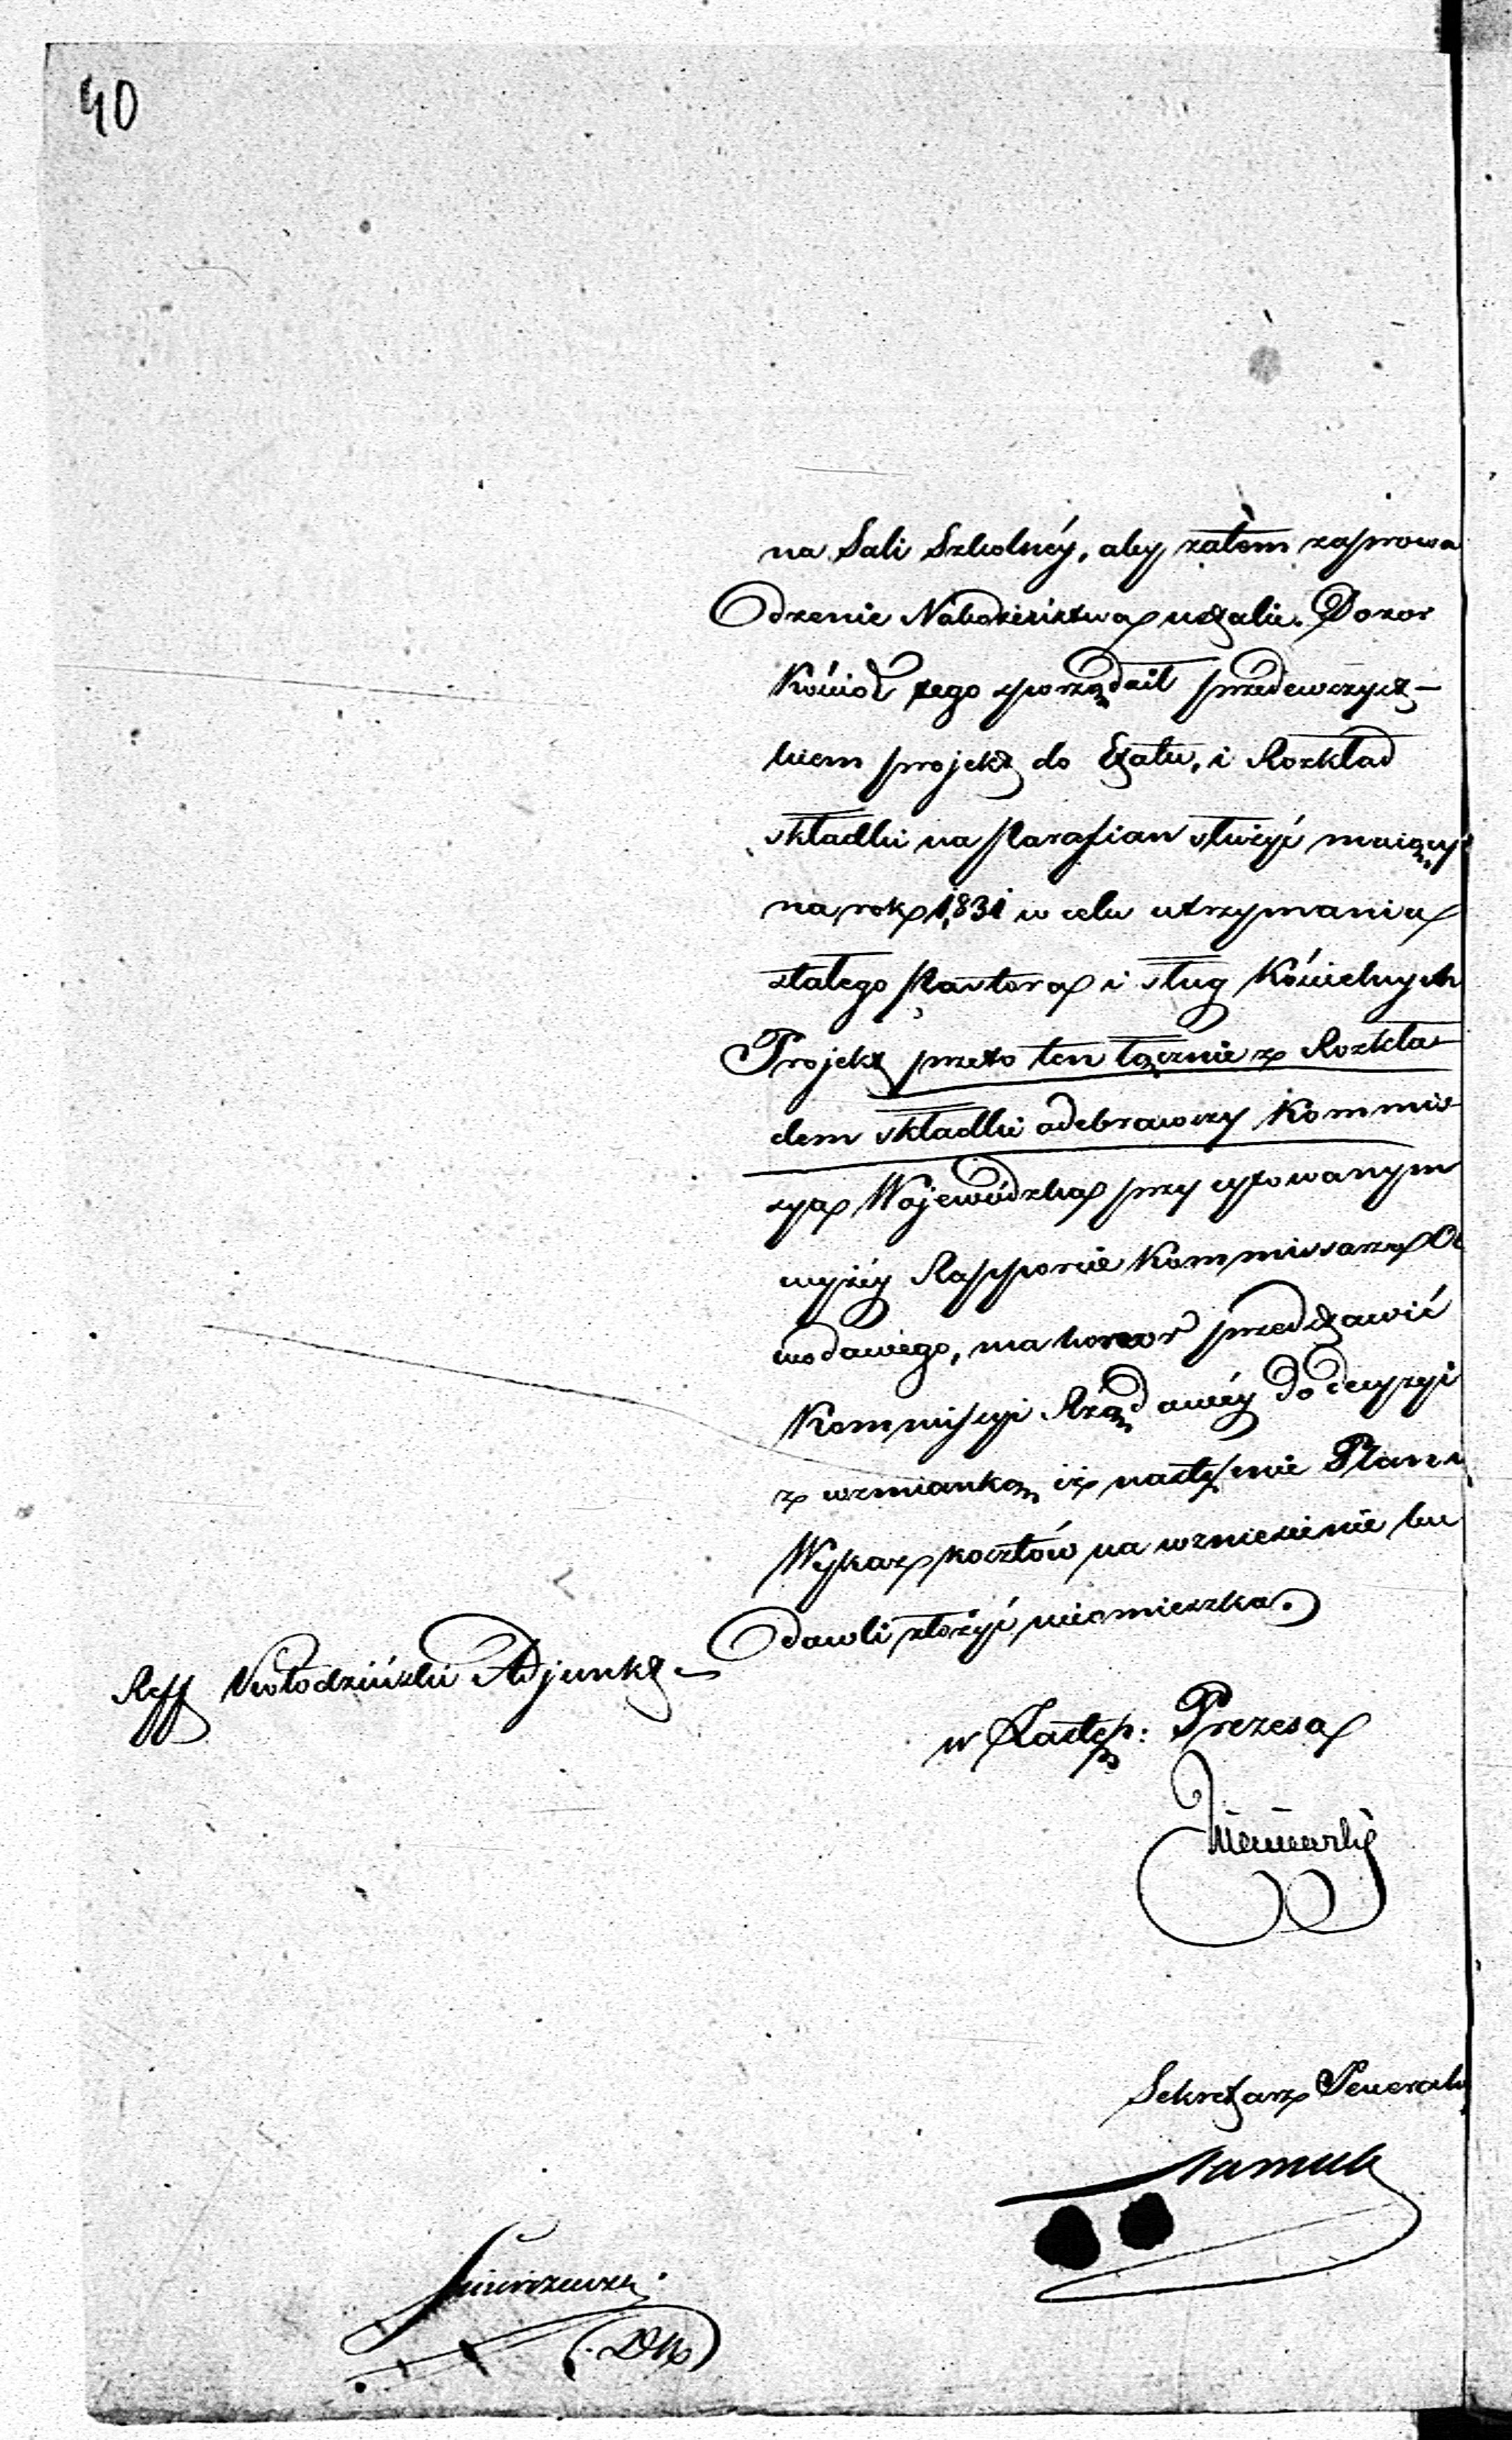 40
na Sali Szkolnéy, aby zatem zaprowa
dzenie Nabożeństwa ustalić. Dozor
Kościoł tego sporządził przedewszyst-
kiem projekt do Etatu, i Rozkład
składki na Parafian służyć maiący
na rok 1831 w celu utrzymania
stałego Pastora i sług Kościelnych
Projekt przeto ten łącznie z Rozkła-
dem składki odebrawszy Kommis-
sya Wojewódzka przy cytowanym
wyżéy Rapporcie Kommissarza Ob
wodowego, ma honor przedstawić
Kommissyi Rządowéy do decyzyi
z wzmianką iż następnie Plan i
Wykaz kosztów na wzniesienie bu
dowli złożyć nieomieszka.
Reff Wołodziński Adjunkt
w Zastęp: Prezesa
Sekretarz Generalny